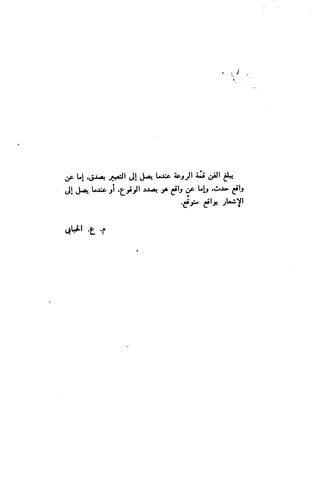 يبلغ الفن قمّة الروعة عندما يصل إلى التعبير بصدق، إما عن
واقع حدث، وإما عن واقع هو بصدد الوقوع، أو عندما يصل إلى
الإشعار بواقع متوقّع.
م. ع. الحبابي